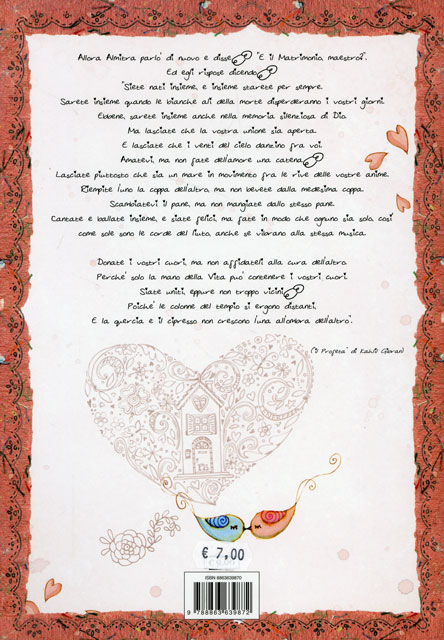 Allora Almitra parlò di nuovo e disse "E il Matrimonio, maestro?".
Ed egli rispose dicendo
"Siete nati insieme, e insieme starete per sempre.
Sarete insieme quando le bianche ali della morte disperderanno i vostri giorni.
Ebbene, sarete insieme anche nella memoria silenziosa di Dio.
Ma lasciate che la vostra unione sia aperta.
E lasciate che i venti del cielo danzino fra voi.
Amatevi, ma non fate dell'amore una catena
Lasciate piuttosto che sia un mare in movimento fra le rive delle vostre anime.
Riempite l'uno la coppa dell'altro, ma non bevete dalla medesima coppa.
Scambiatevi il pane, ma non mangiate dallo stesso pane.
Cantate e ballate insieme, e siate felici, ma fate in modo che ognuno sia solo, così
come sole sono le corde del liuto, anche se vibrano alla stessa musica.
Donate i vostri cuori, ma non affidateli alla cura dell'altro.
Perchè solo la mano della Vita può contenere i vostri cuori.
Siate uniti, eppure non troppo vicini
Poichè le colonne del tempio si ergono distanti,
E la quercia e il cipresso non crescono l'una all'ombra dell'altro".
("Il Profeta" di Kahlil Gibran)
€ 7,00
ISBN 8863639870
9 788863 639872